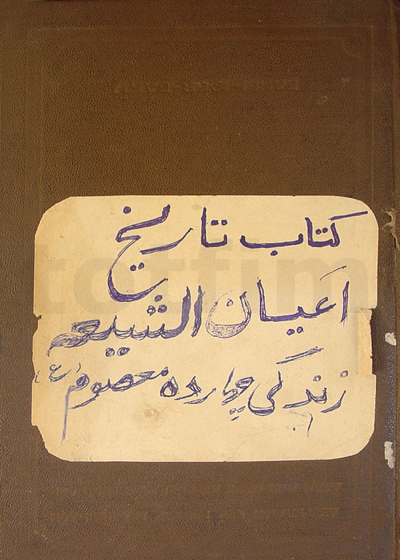 کتاب تاریخ
اَعیان الشیعه
زندگی چهارده معصوم (ع)